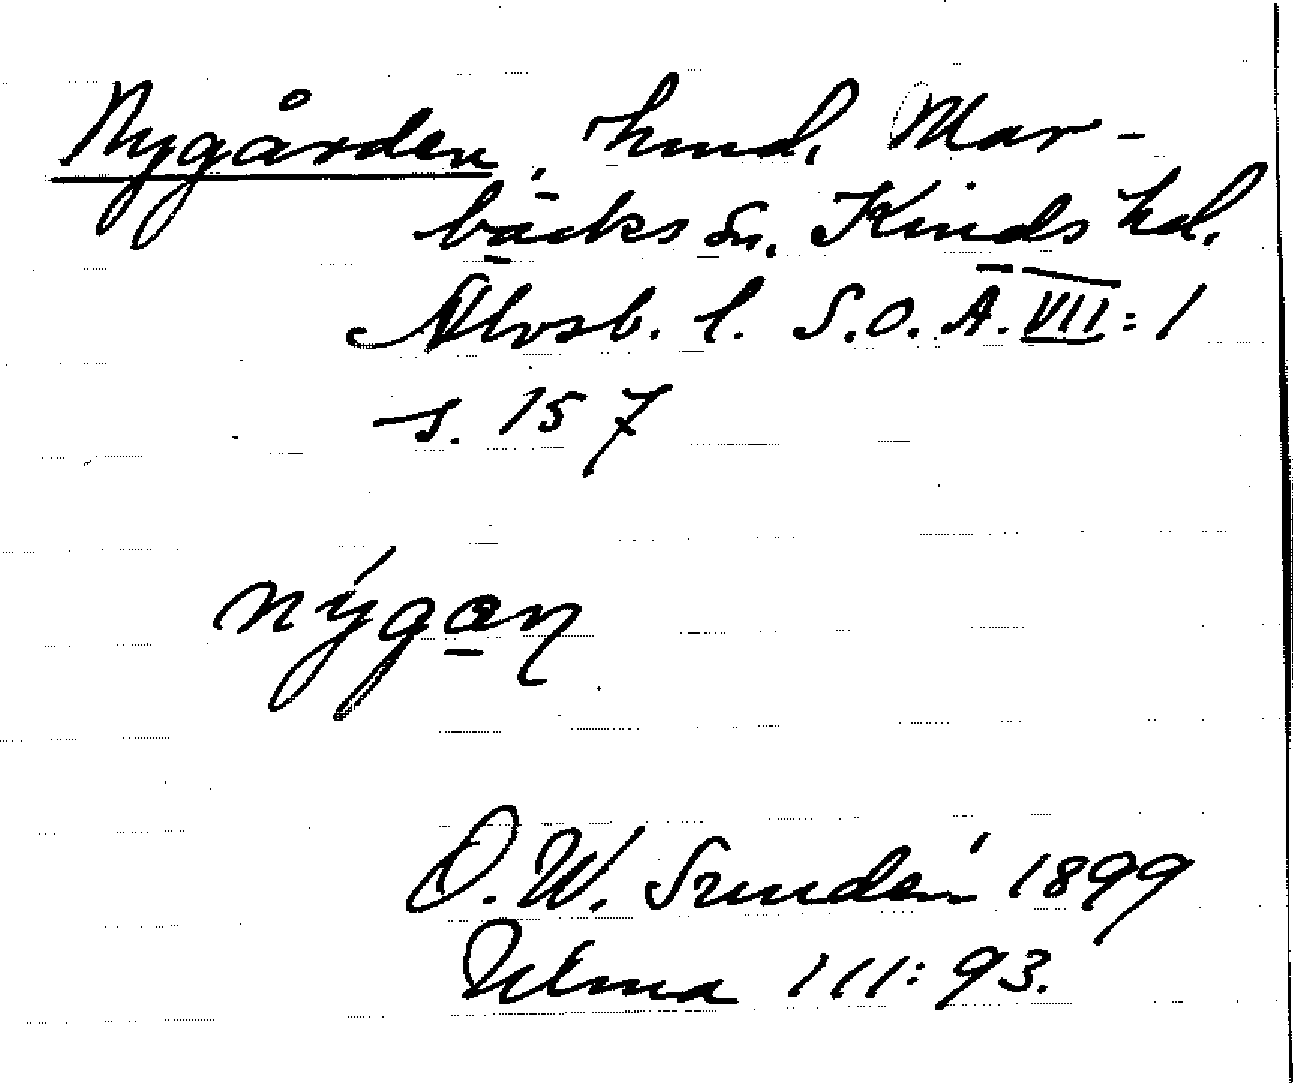 Nygården, hmd, Mar-
bäcks sn. Kinds hd.
Älvsb. l. S.O.Ä. VII: 1
s. 157
nýgan
D. W. Sundén 1899
Ulma 111:93.